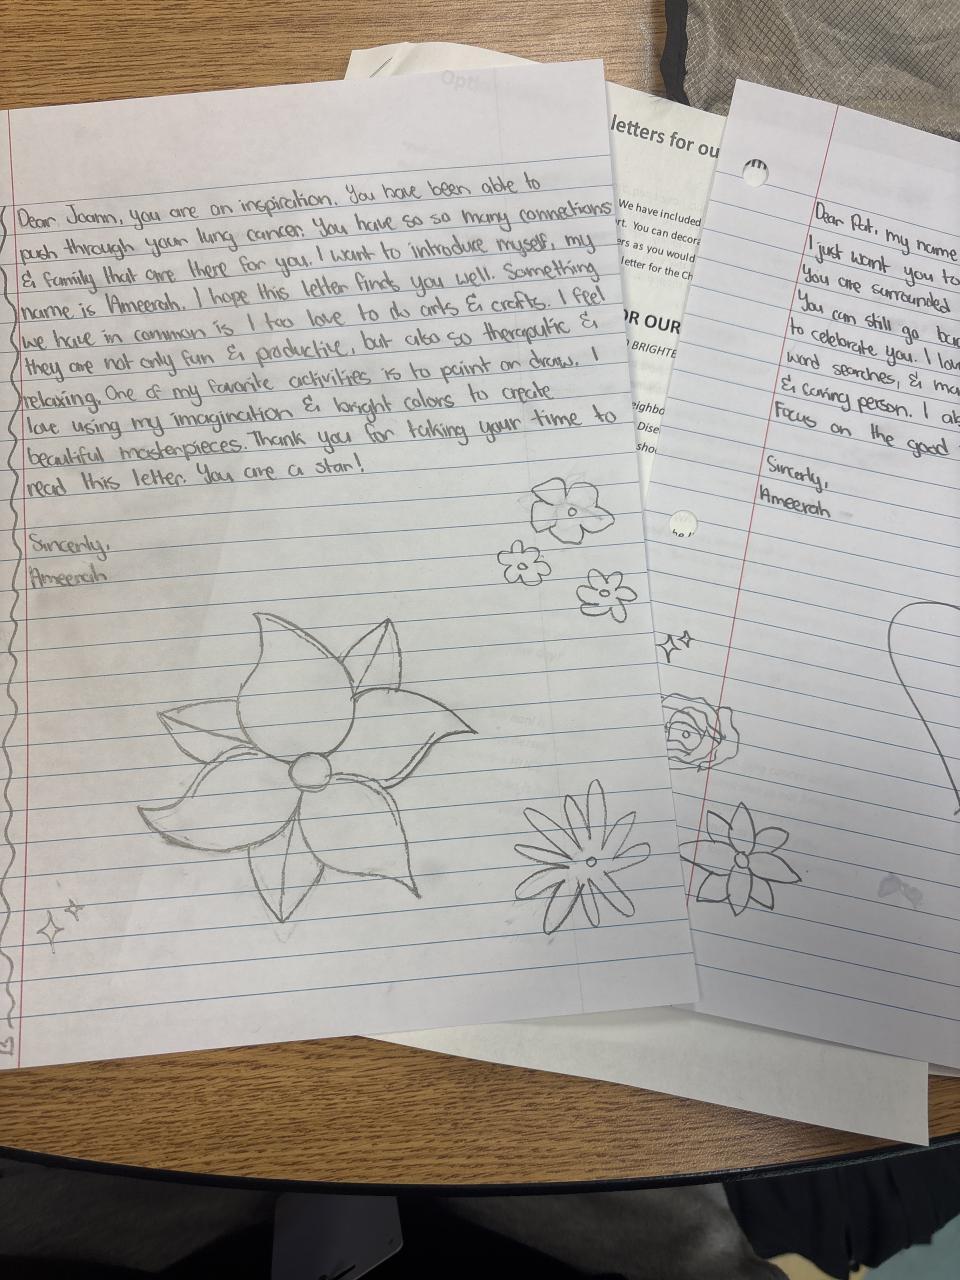 Dear Joann, you are an inspiration. You have been able to
push through your lung cancer. You have so so many connections
& family that are there for you. I want to introduce myself, my
name is Ameerah. I hope this letter finds you well. Something
we have in common is I too love to do arts & crafts. I feel
they are not only fun & productive, but also so theraputic &
relaxing. One of my favorite activities is to paint an draw. I
love using my imagination & bright colors to create
beautiful masterpieces. Thank you for taking your time to
read this letter. You are a star!
Sincerly,
Ameerah
letters for ou
We have included
rt. You can decora
ers as you would
letter for the Ch
OR OUR
BRIGHTE
eighbo
Dise
shou
Dear Pat, my name
I just want you to
you are surrounded
You can still go
to celebrate you. I
word searches, &
& caring person. I
Focus on the good
Sincerly,
Ameerah